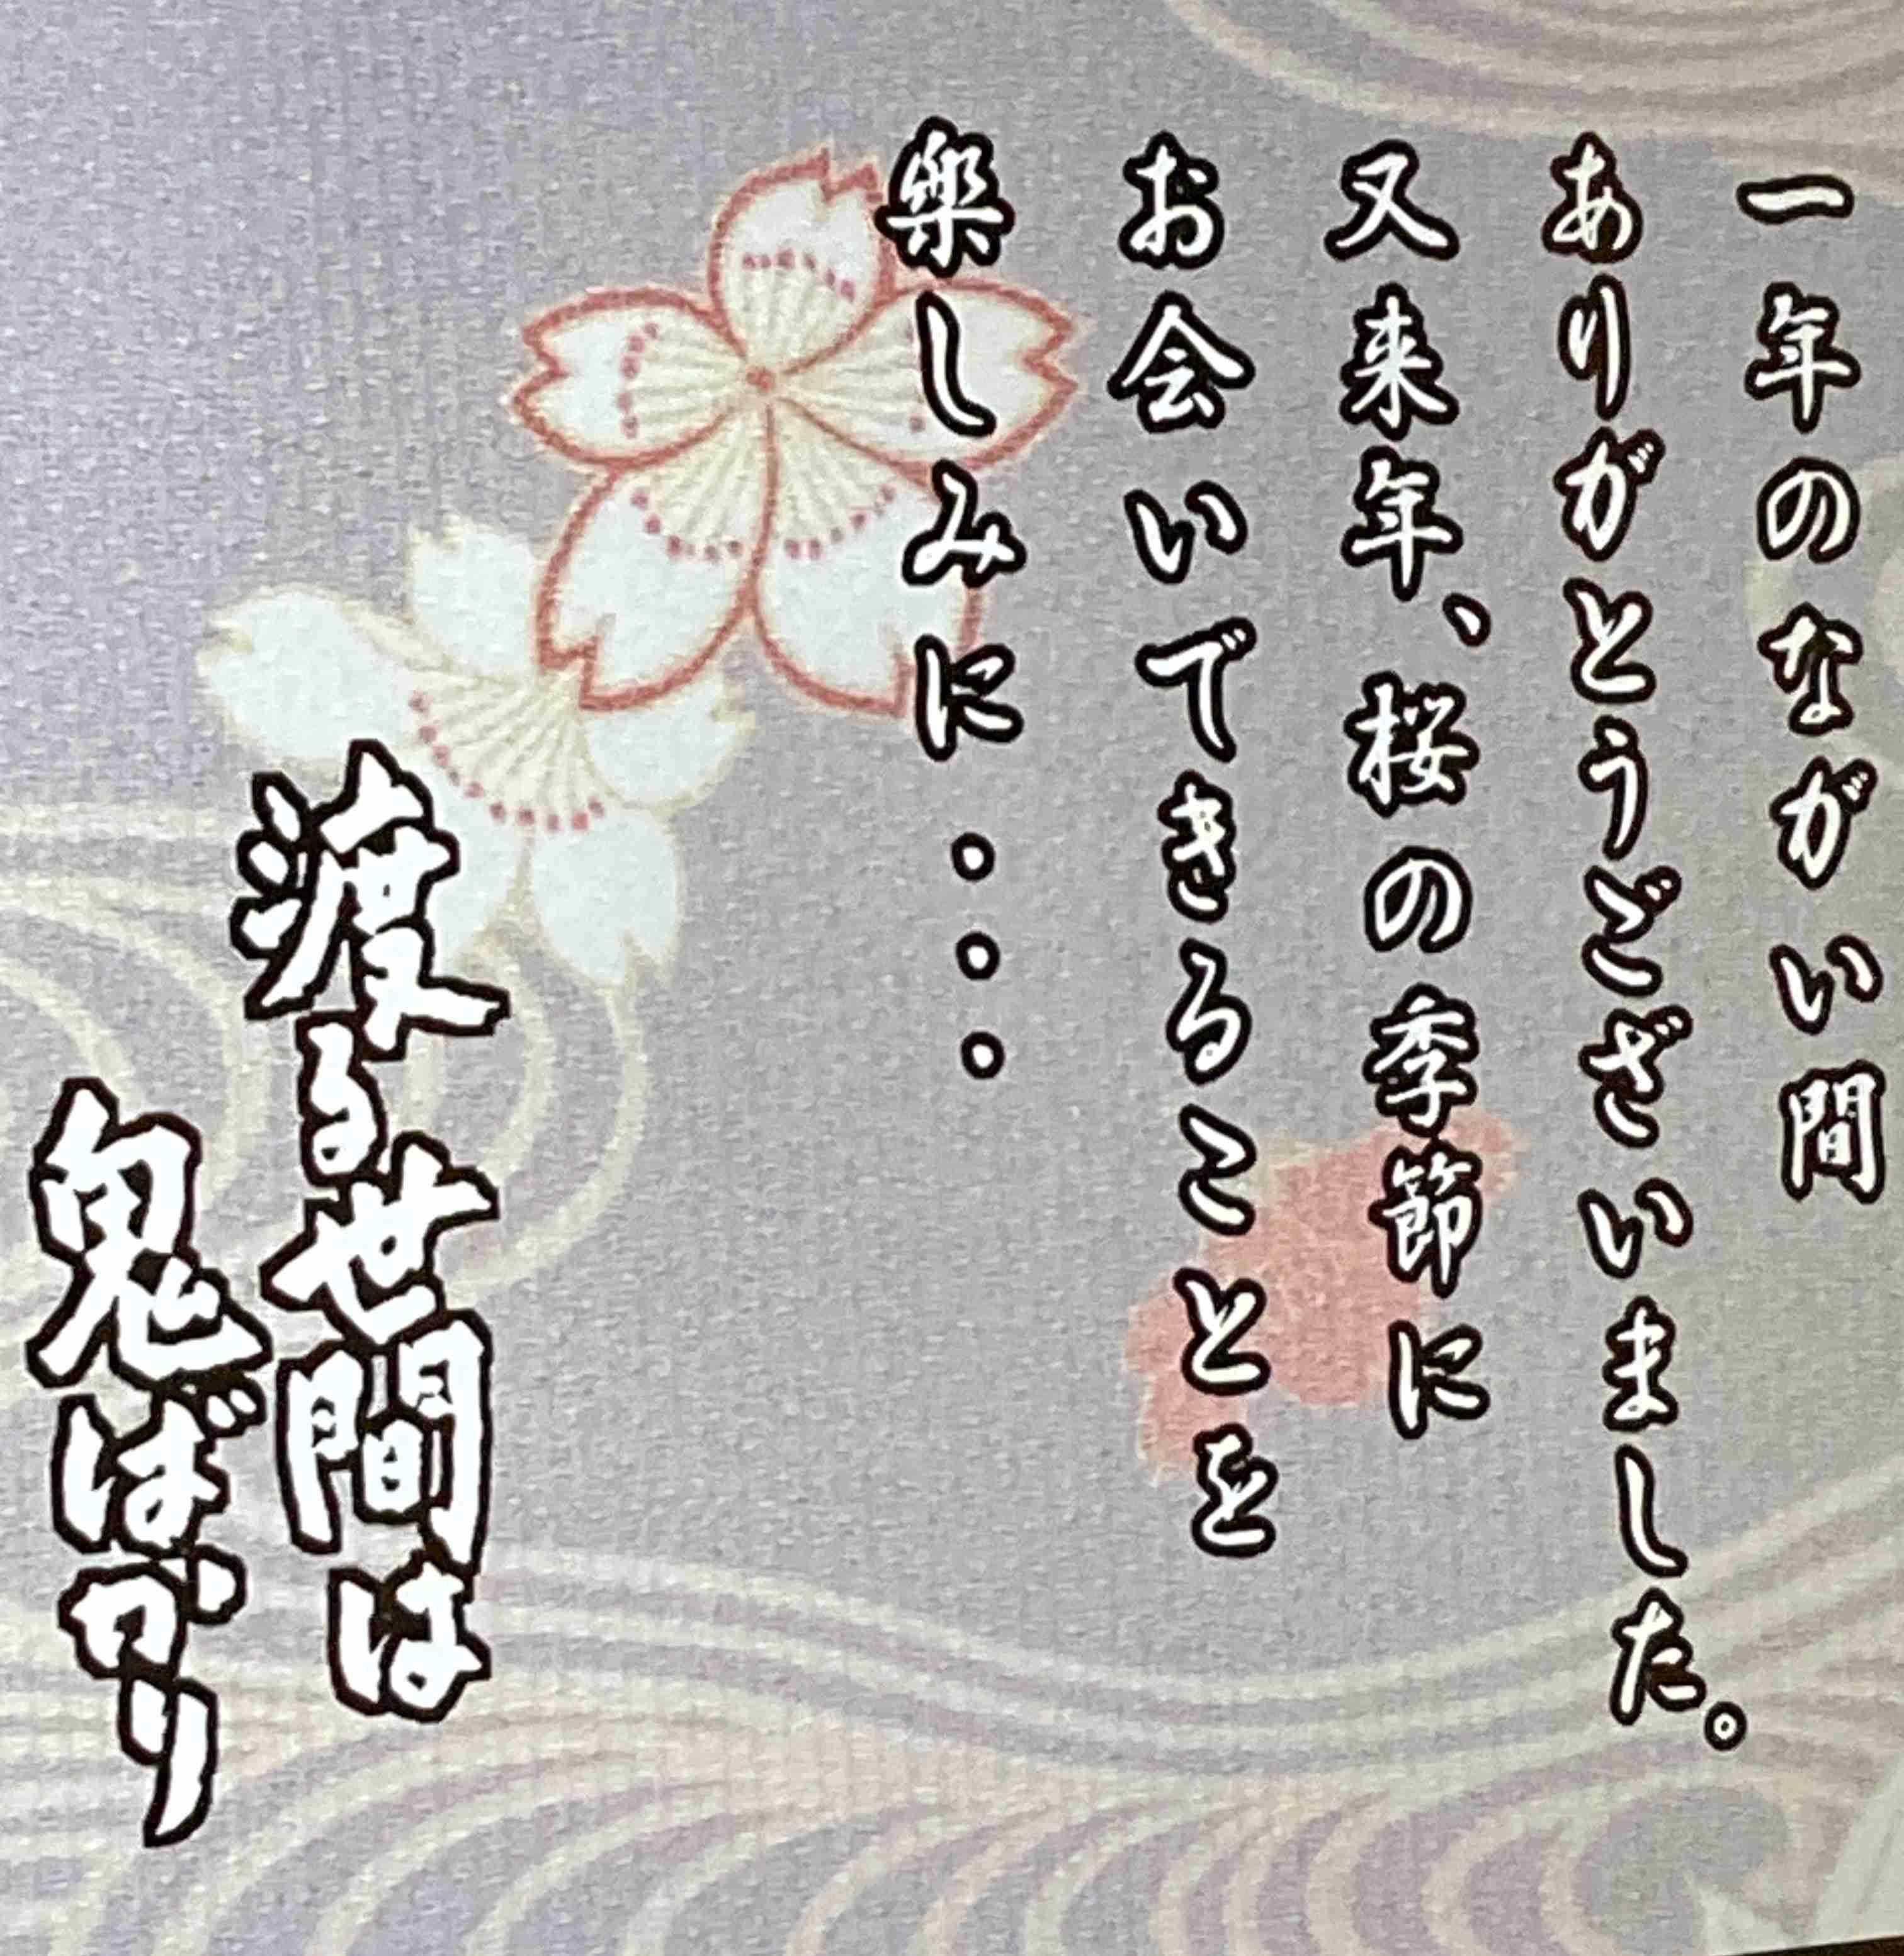 一年のながい間
ありがとうございました。
又来年、桜の季節に
お会いできることを
楽しみに・・・
渡る世間は
鬼ばかり